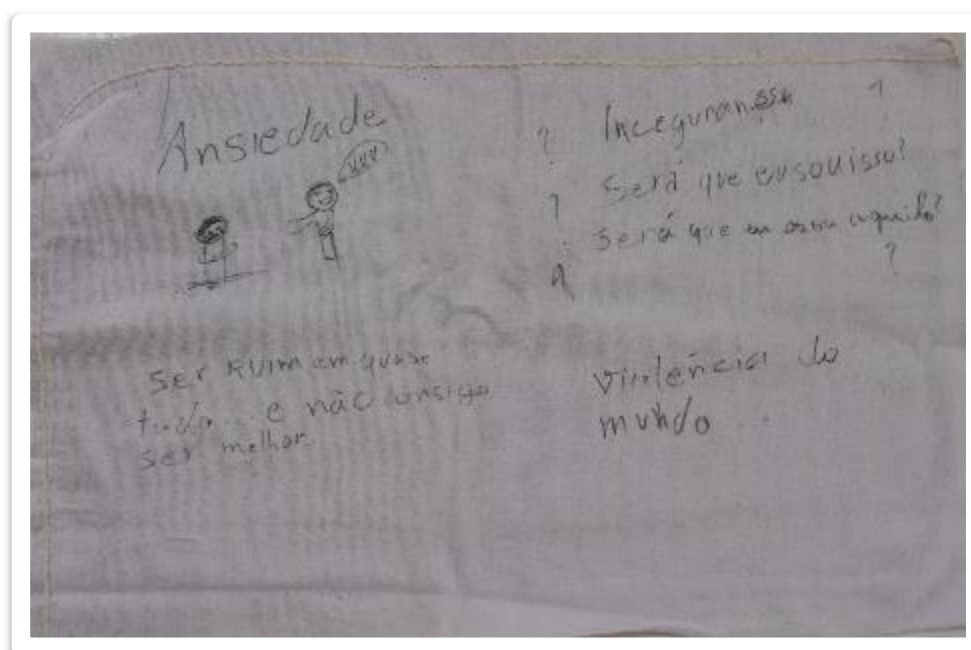 Ansiedade
? Inceguranssa ?
? Será que eu sou isso?
Será que eu sou aquilo?
?
ser Ruim em quase
tudo... e não consigo
ser melhor
violência do
mundo...